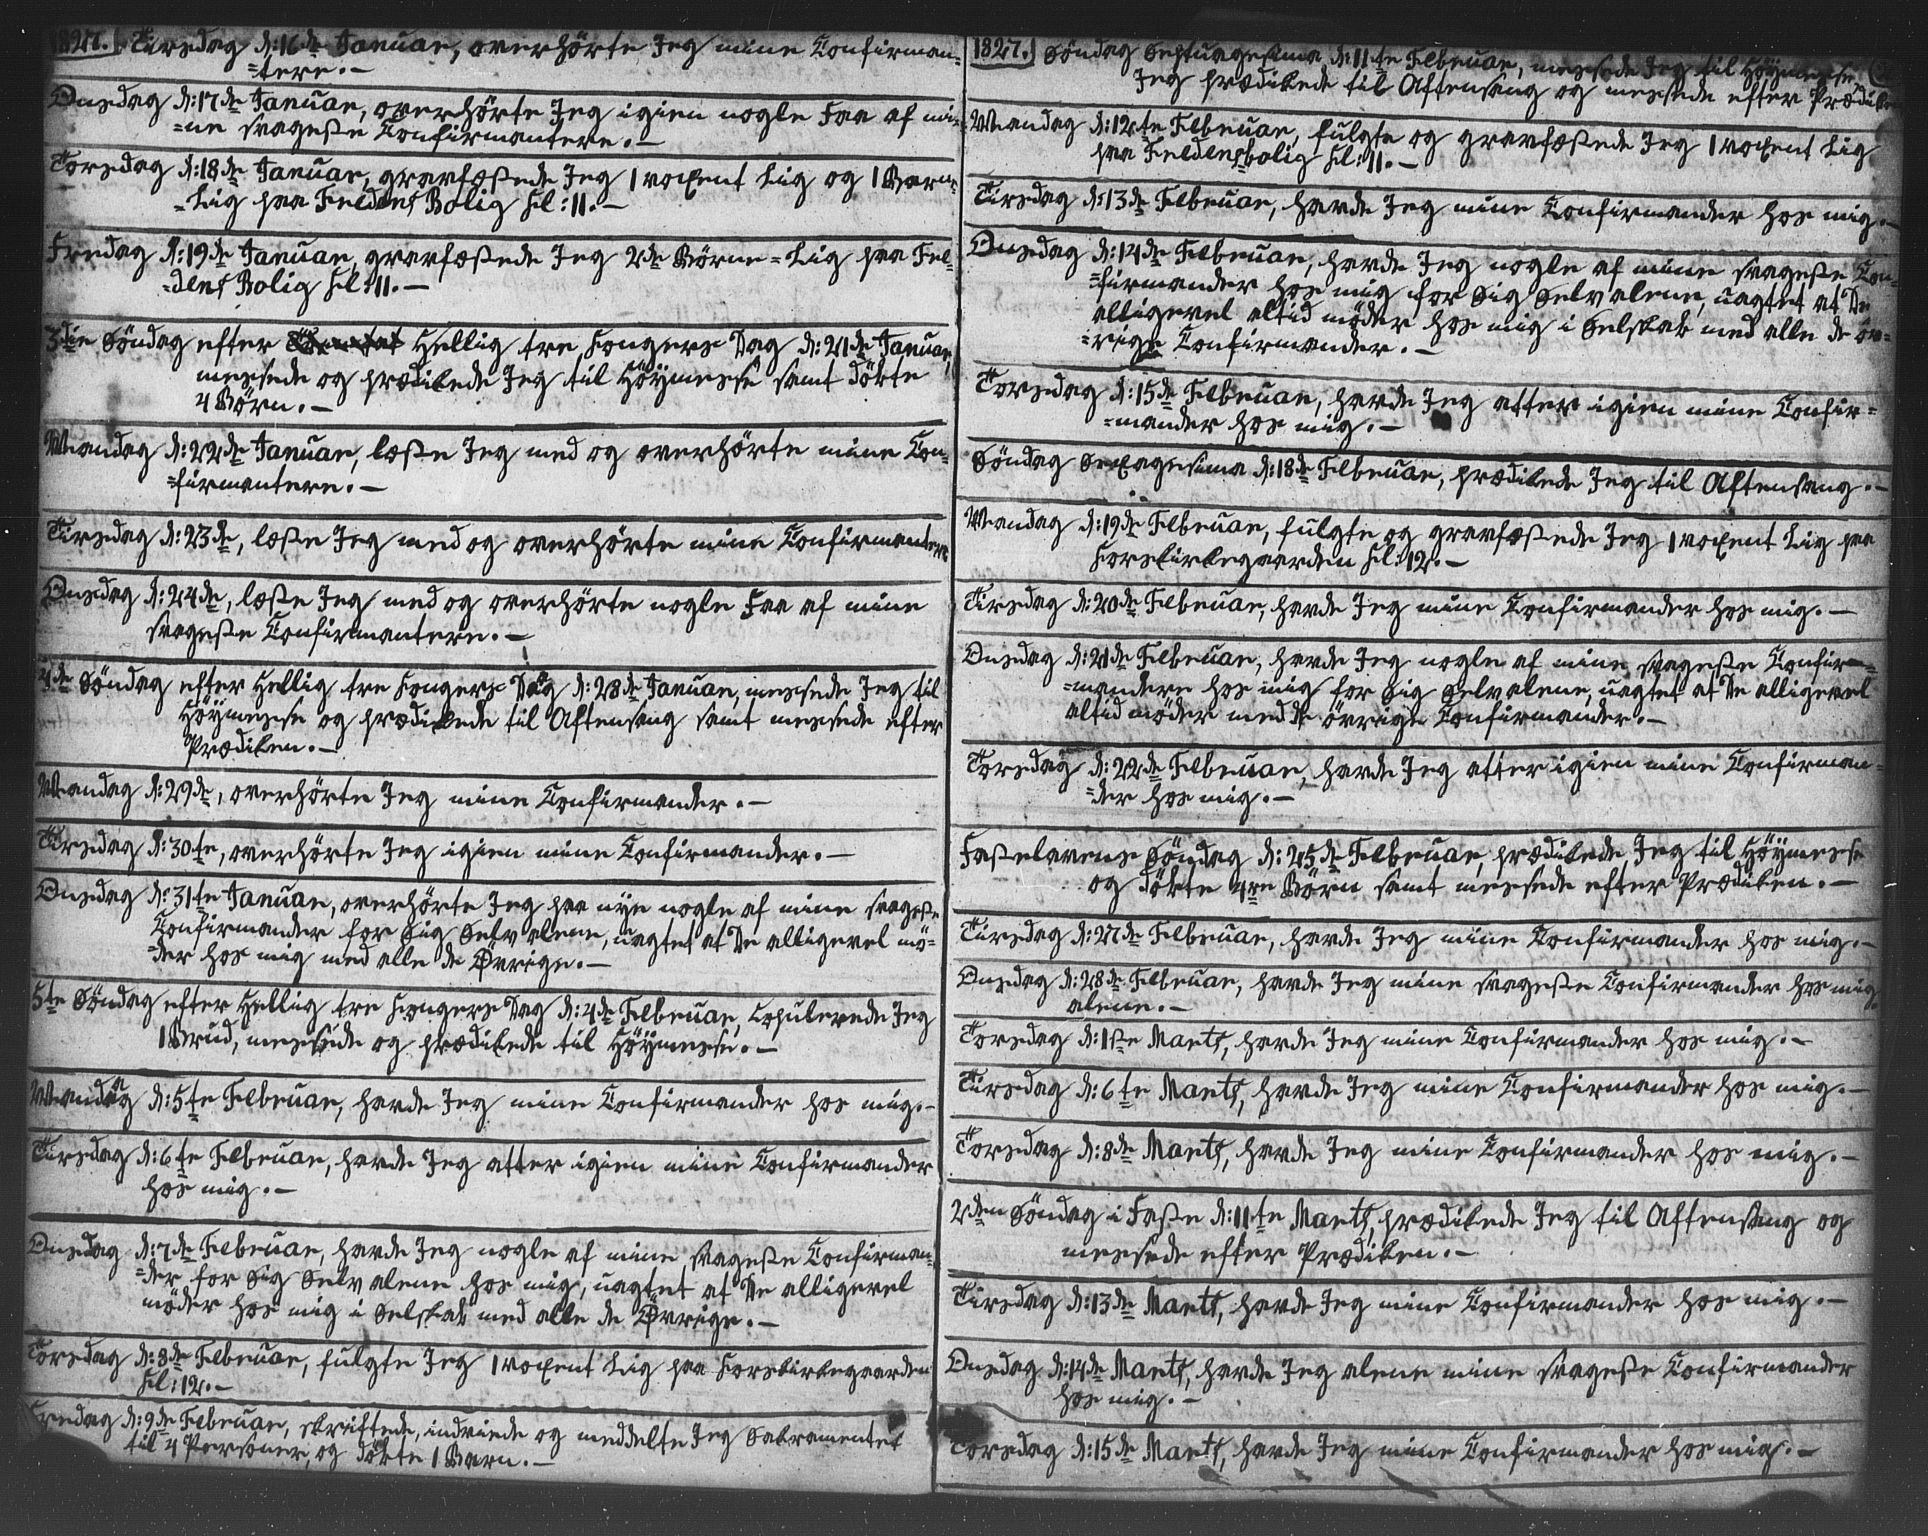 1827. Tirsdag d: 16de Januar, overhörte Jeg mine Confirman-
=tere. —
Onsdag d: 17de Januar, overhörte Jeg igien nogle Faa af mi-
=ne svageste Confirmantere. —
Torsdag d: 18de Januar, gravfæstede Jeg 1 voxent Lig og 1 Barne-
=Lig paa Feldens Bolig Kl: 11. —
Fredag d: 19de Januar, gravfæstede Jeg 2de Börne=Lig paa Fel-
=dens Bolig Kl: 11. —
3die Söndag efter Hellig tre Kongers Dag d: 21de Januar,
messede og prædikede Jeg til Höymesse samt döbte
4 Börn. —
Mandag d: 22de Januar, læste Jeg med og overhörte mine Con-
=firmantere. —
Tirsdag d: 23de, læste Jeg med og overhörte mine Confirmantere
Onsdag d: 24de, læste Jeg med og overhörte nogle Faa af mine
svageste Confirmantere. —
4de Söndag efter Hellig tre Kongers Dag d: 28de Januar, messede Jeg til
Höymesse og prædikede til Aftensang samt messede efter
Prædiken. —
Mandag d: 29de, overhörte Jeg mine Confirmander. —
Tirsdag d: 30te, overhörte Jeg igien mine Confirmander. —
Onsdag d: 31te Januar, overhörte Jeg paa nye nogle af mine svageste
Confirmander for Sig Selv alene, uagtet at De alligevel mö-
=der hos mig med alle de Øvrige. —
5te Söndag efter Hellig tre Kongers Dag d: 4de Februar, Copulerede Jeg
1 Brud, messede og prædikede til Höymesse. —
Mandag d: 5te Februar, havde Jeg mine Confirmander hos mig. —
Tirsdag d: 6te Februar, havde Jeg atter igien mine Confirmander
hos mig. —
Onsdag d: 7de Februar, havde Jeg nogle af mine svageste Confirman-
=der for Sig Selv alene hos mig, uagtet at De alligevel
möder hos mig i Selskab med alle de Øvrige. —
Torsdag d: 8de Februar, fulgte Jeg 1 voxent Lig paa Korskirkegaarden
Kl: 12. —
Fredag d: 9de Februar, skriftede, indviede og meddelte Jeg Sakramentet
til 4 Personer, og döbte 1 Barn. —
1827. Söndag Septuagesima d: 11te Februar, messede Jeg til Höymesse
Jeg prædikede til Aftensang og messede efter Prædiken
Mandag d: 12te Februar, fulgte og gravfæstede Jeg 1 voxent Lig
paa Feldensbolig Kl: 11. —
Tirsdag d: 13de Februar, havde Jeg mine Confirmander hos mig. —
Onsdag d: 14de Februar, havde Jeg nogle af mine svageste Con-
=firmander hos mig for Sig Selv alene, uagtet at De
alligevel altid möder hos mig i Selskab med alle de öv-
=rige Confirmander. —
Torsdag d: 15de Februar, havde Jeg atter igien mine Confir-
=mander hos mig. —
Söndag Sexagesima d: 18de Februar, prædikede Jeg til Aftensang. —
Mandag d: 19de Februar, fulgte og gravfæstede Jeg 1 voxent Lig paa
Korskirkegaarden Kl: 12. —
Tirsdag d: 20de Februar, havde Jeg mine Confirmander hos mig. —
Onsdag d: 21de Februar, havde Jeg nogle af mine svageste Confir-
=mandere hos mig for Sig Selv alene, uagtet at De alligevel
altid möder med de övrige Confirmander. —
Torsdag d: 22de Februar, havde Jeg atter igien mine Confirman-
=der hos mig. —
Fastelavens Söndag d: 25de Februar, prædikede Jeg til Höymesse
og döbte 4re Börn samt messede efter Prædiken. —
Tirsdag d: 27de Februar, havde Jeg mine Confirmander hos mig. —
Onsdag d: 28de Februar, havde Jeg mine svageste Confirmander hos mig
alene. —
Torsdag d: 1ste Marts, havde Jeg mine Confirmander hos mig. —
Tirsdag d: 6te Marts, havde Jeg mine Confirmander hos mig. —
Torsdag d: 8de Marts, havde Jeg mine Confirmander hos mig. —
2den Söndag i Faste d: 11te Marts, prædikede Jeg til Aftensang og
messede efter Prædiken. —
Tirsdag d: 13de Marts, havde Jeg mine Confirmander hos mig. —
Onsdag d: 14de Marts, havde Jeg alene mine svageste Confirmander
hos mig. —
Torsdag d: 15de Marts, havde Jeg mine Confirmander hos mig. —